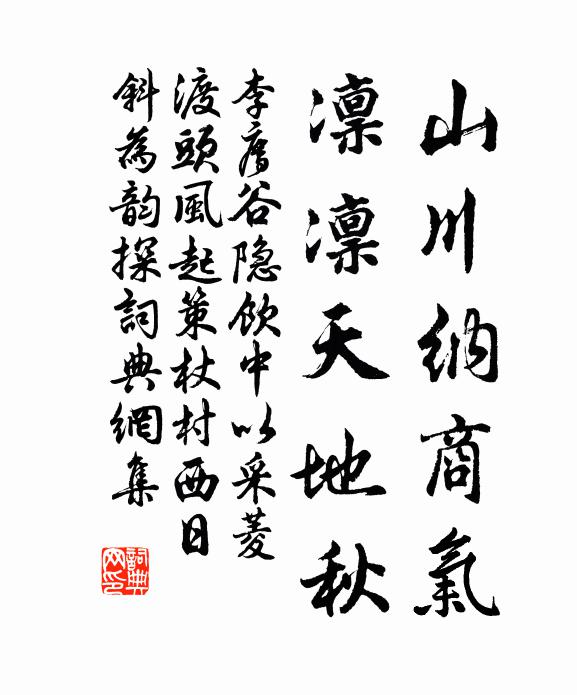 山川納商氣
凛凛天地秋
李膺谷隐飲中以采菱
渡頭風起策杖村西日
斜為韵探詞典網集
詞典网印